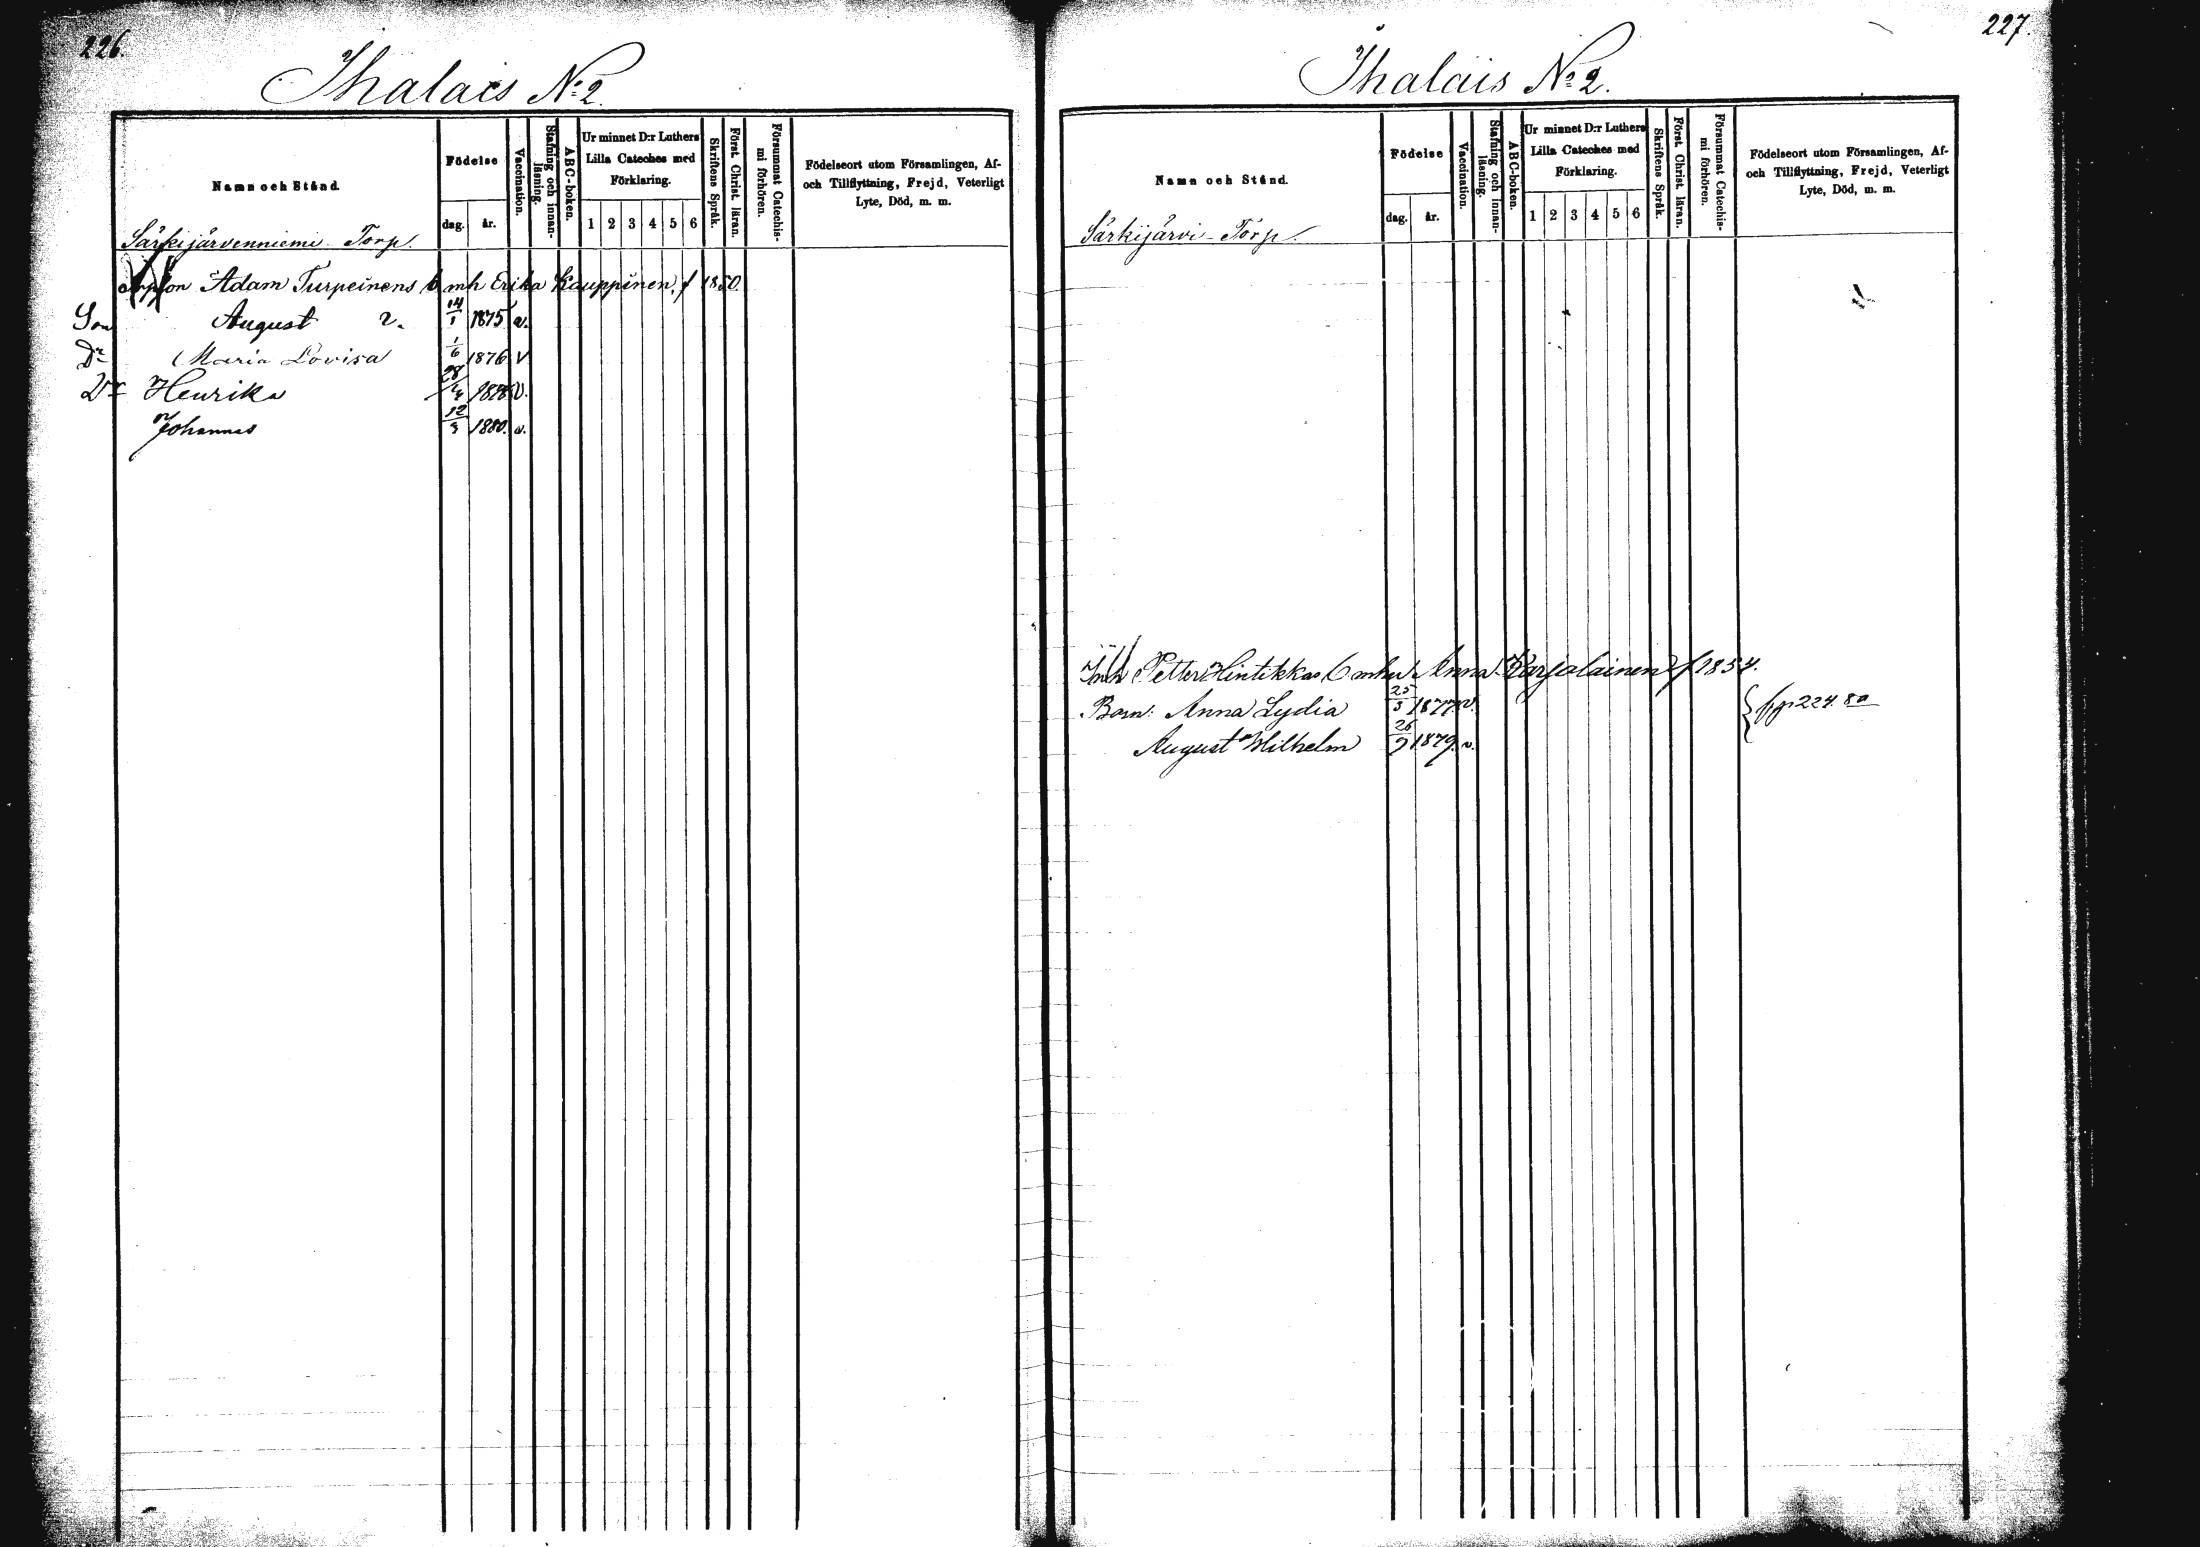 226.
Ihalais No 2.
Namn och Stånd.
Födelse
dag.
år.
Vaccination.
Stafning och innan-
läsning.
ABC-boken.
Ur minnet D:r Luthers
Lilla Cateches med
Förklaring.
1 2 3 4 5 6
Skriftens Språk.
Först. Christ. läran.
Försummat Catechis-
mi förhören.
Födelseort utom Församlingen, Af-
och Tillflyttning, Frejd, Veterligt
Lyte, Död, m. m.
Särkijärvenniemi Torp.
Adam Turpeinens b mh Erika Kauppinen, f 1850.
Son August v. 14/1 1875 v.
Dr Maria Lovisa 1/6 1876 v
Dr Henrika 28/4 1878 v.
Johannes 12/3 1880. v.
227.
Ihalais No 2.
Namn och Stånd.
Födelse
dag.
år.
Vaccination.
Stafning och innan-
läsning.
ABC-boken.
Ur minnet D:r Luthers
Lilla Cateches med
Förklaring.
1 2 3 4 5 6
Skriftens Språk.
Först. Christ. läran.
Försummat Catechis-
mi förhören.
Födelseort utom Församlingen, Af-
och Tillflyttning, Frejd, Veterligt
Lyte, Död, m. m.
Särkijärvi Torp.
Inh Petter Hintikkas b mhu Anna Karjalainen f 1854.
Barn: Anna Lydia 25/5 1877. v. } fr p 224. 80
August Wilhelm 26/9 1879. v.